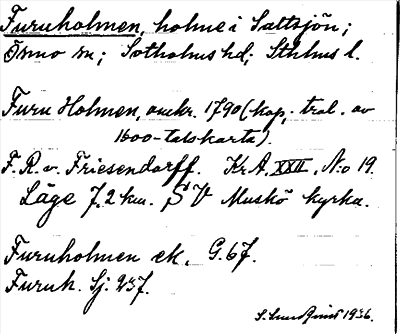 Furuholmen, holme i Saltsjön;
Ösmo sn; Sotholms hd; Sthlms l.
Furu Holmen, omkr. 1790 (kop. trol. av
1600-talskarta).
F. R. v. Friesendorff. Kr A, XXII, N:o 19.
Läge 7,2 km. SV Muskö kyrka.
Furuholmen ek. G. 67.
Furuh. Sj. 237.
S. Sundquist 1936.